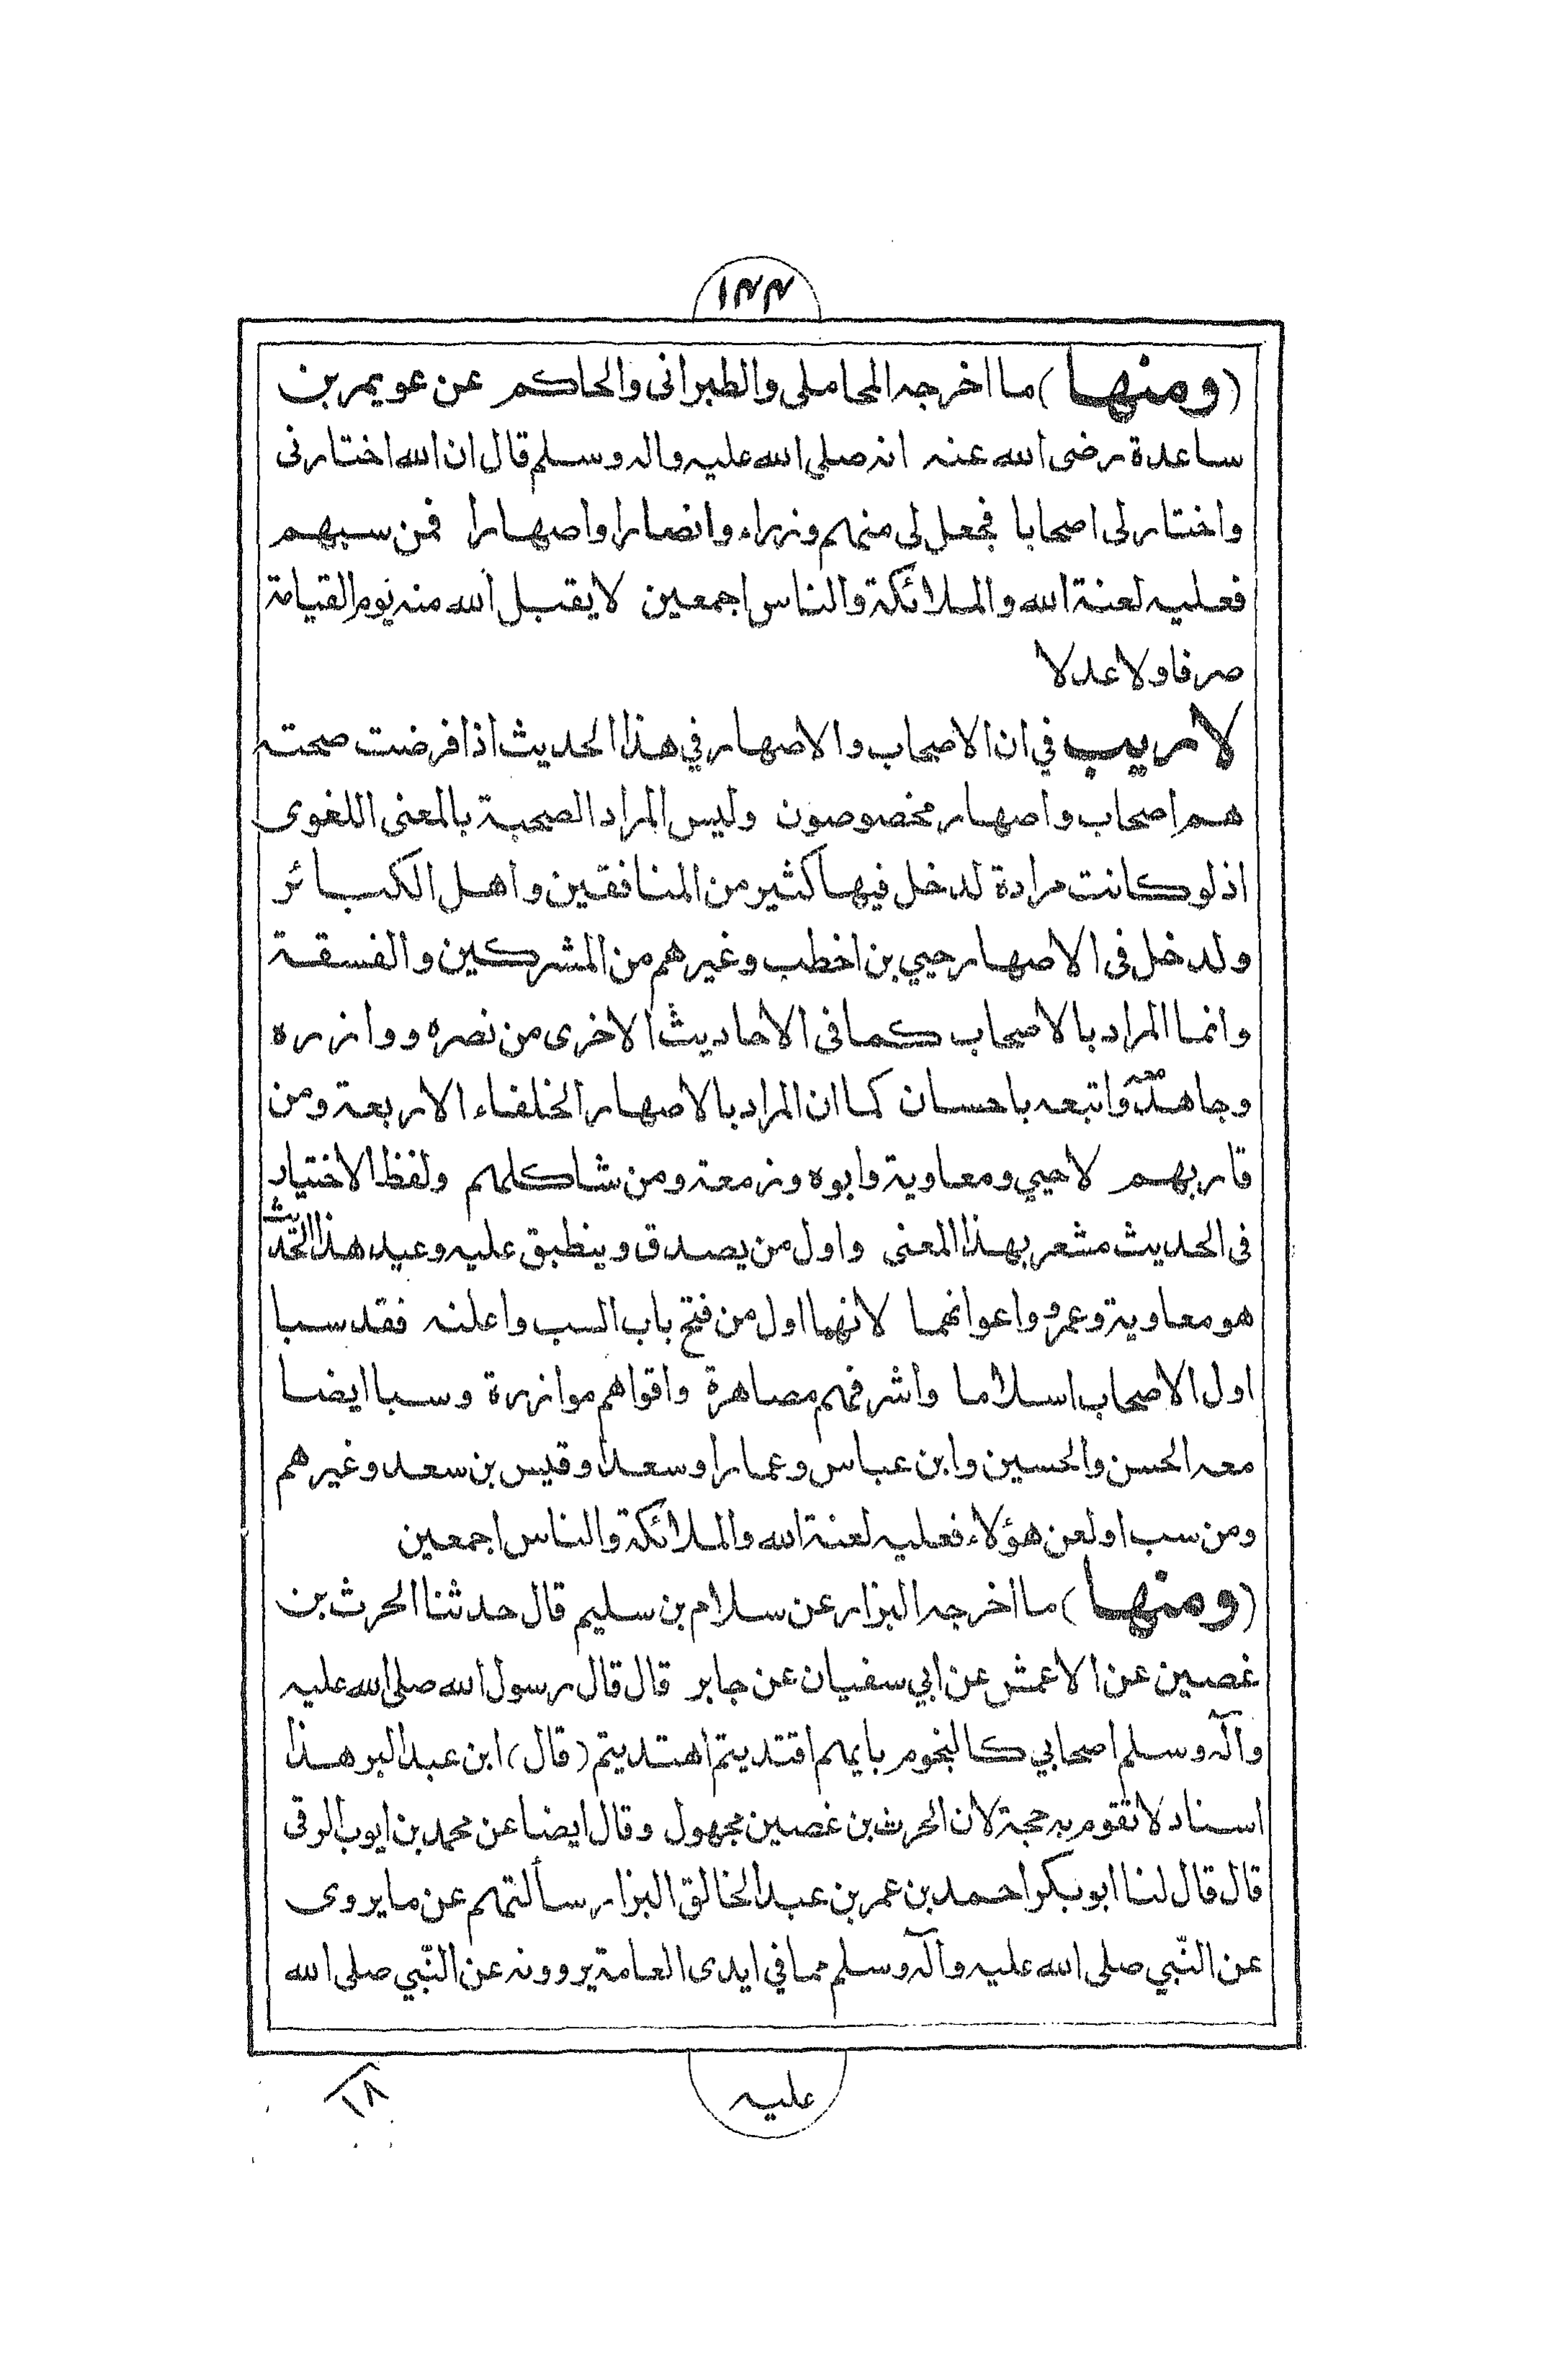 ١٣٣
(ومنها) ما اخرجه المحاملي والطبرانى والحاكم عن عويمر بن
ساعدة رضى الله عنه انه صلى الله عليه واله وسلم قال ان الله اختارنى
واختار لى اصحابا فجعل لى منهم وزراء وانصارا واصهارا فمن سبهم
فعليه لعنة الله والملائكة والناس اجمعين لا يقبل الله منه يوم القيامة
صرفا ولا عدلا
لا ريب في ان الاصحاب والاصهار في هذا الحديث اذا فرضت صحته
هم اصحاب واصهار مخصوصون وليس المراد الصحبة بالمعنى اللغوى
اذ لو كانت مرادة لدخل فيها كثير من المنافقين واهل الكبائر
ولدخل فى الاصهار حيي بن اخطب وغيرهم من المشركين والفسقة
وانما المراد بالاصحاب كما فى الاحاديث الاخرى من نصره ووازره
وجاهد معه واتبعه باحسان كما ان المراد بالاصهار الخلفاء الاربعة ومن
قاربهم لا حيي ومعاوية وابوه وزمعة ومن شاكلهم ولفظ الاختيار
فى الحديث مشعر بهذا المعنى واول من يصدق وينطبق عليه وعيد هذا الحديث
هو معاوية وعمرو واعوانهما لانهما اول من فتح باب السب واعلنه فقد سبا
اول الاصحاب اسلاما واشرفهم مصاهرة واقواهم موازرة وسبا ايضا
معه الحسن والحسين وابن عباس وعمارا وسعدا وقيس بن سعد وغيرهم
ومن سب او لعن هؤلاء فعليه لعنة الله والملائكة والناس اجمعين
(ومنها) ما اخرجه البزار عن سلام بن سليم قال حدثنا الحرث بن
غصين عن الاعمش عن ابي سفيان عن جابر قال قال رسول الله صلى الله عليه
وآله وسلم اصحابي كالنجوم بايهم اقتديتم اهتديتم (قال) ابن عبد البر هذا
اسناد لا تقوم به حجة لان الحرث بن غصين مجهول وقال ايضا عن محمد بن ايوب الرقى
قال قال لنا ابو بكر احمد بن عمر بن عبد الخالق البزار سألتهم عن ما يروى
عن النّبي صلى الله عليه وآله وسلم مما في ايدى العامة يروونه عن النّبي صلى الله
عليه
١٨